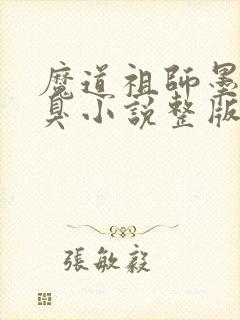 魔道祖師墨
臭小說整版
張敏毅